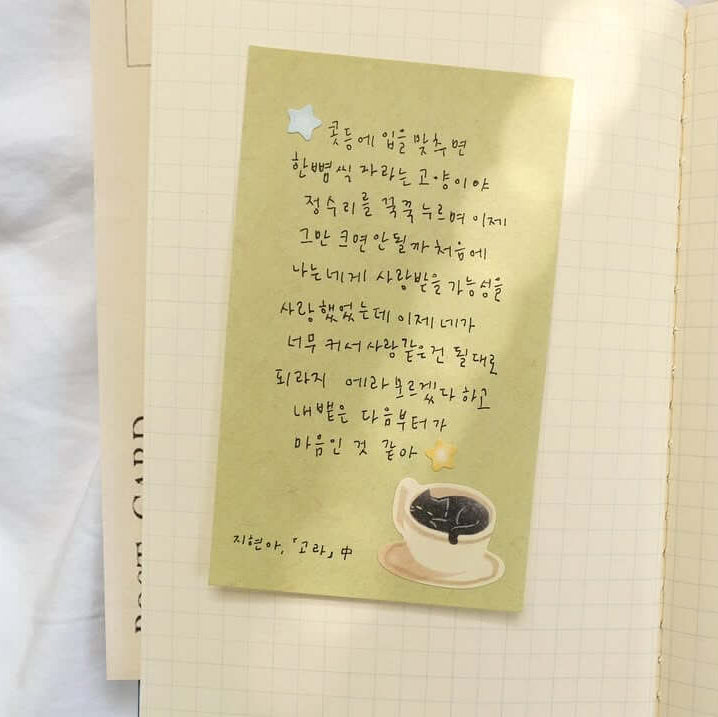 콧등에 입을 맞추면
한뼘씩 자라는 고양이야
정수리를 꾹꾹 누르며 이제
그만 크면 안 될까 처음에
나는 네게 사랑받을 가능성을
사랑했었는데 이제 네가
너무 커서 사랑같은건 될대로
되라지 에라 모르겠다 하고
내뱉은 다음부터가
마음인 것 같아
지현아, 「고라」 中
POST CARD